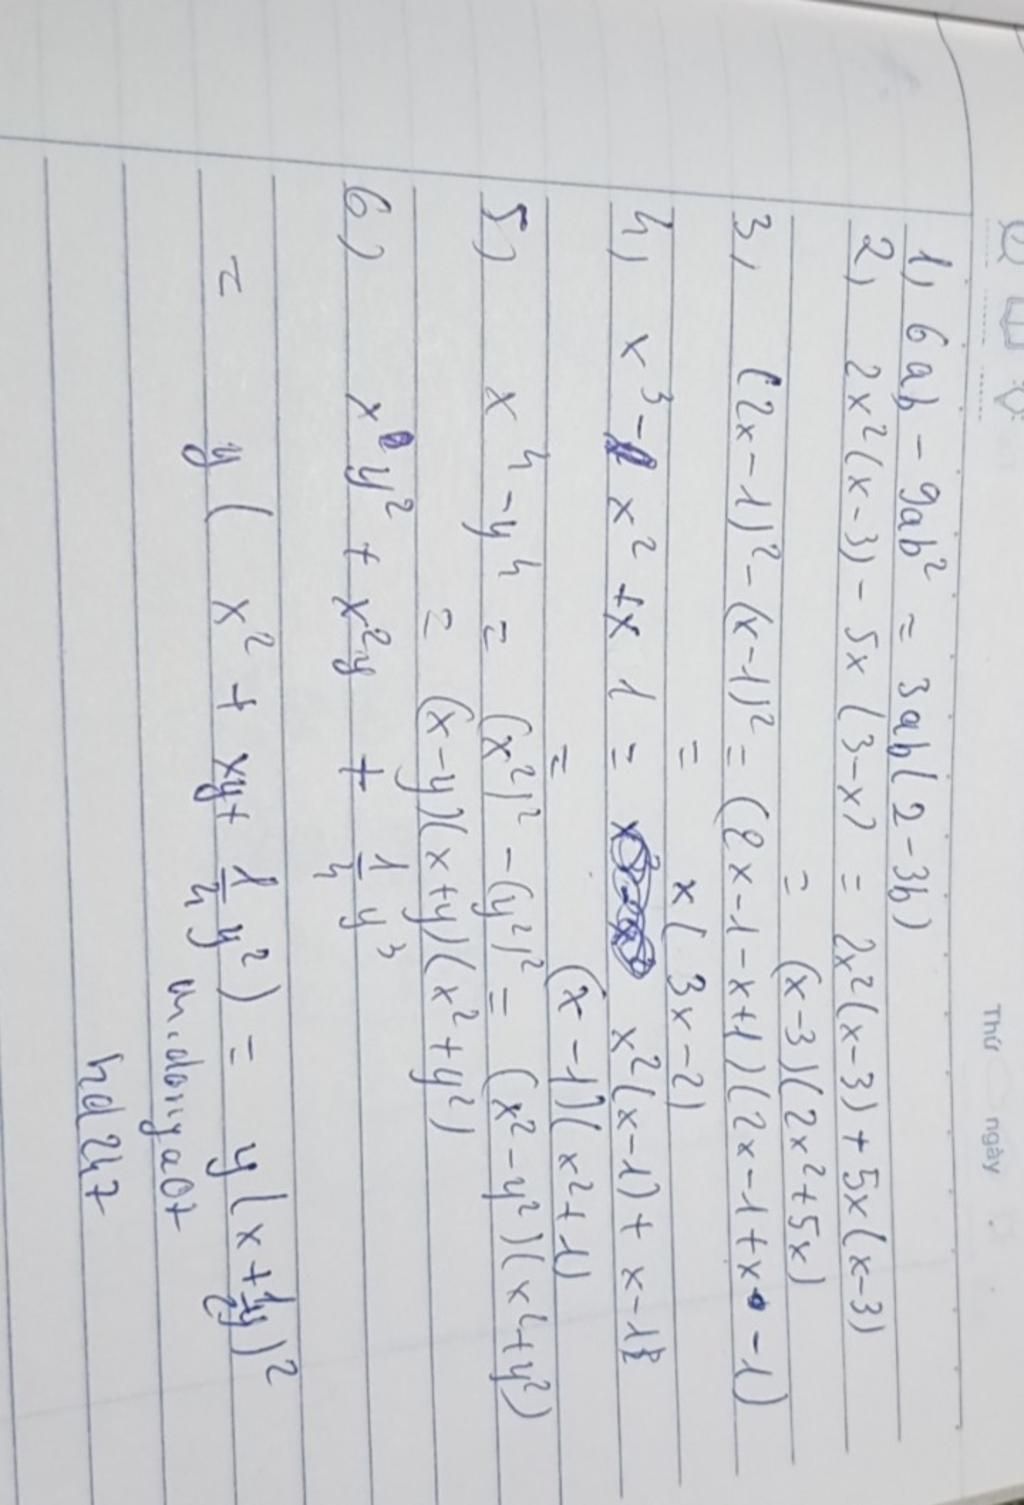 Thứ ngày
1, 6ab - 9ab² = 3ab(2-3b)
2, 2x²(x-3) - 5x(3-x) = 2x²(x-3) + 5x(x-3)
= (x-3)(2x²+5x)
3, (2x-1)² - (x-1)² = (2x-1-x+1)(2x-1+x-1)
= x(3x-2)
4, x³ - x² + x 1 = x²(x-1) + x-1
= (x-1)(x²+1)
5, x⁴ - y⁴ = (x²)² - (y²)² = (x²-y²)(x²+y²)
= (x-y)(x+y)(x²+y²)
6, x y² + x²y + 1/4 y³
= y(x² + xy + 1/4 y²) = y(x + 1/2 y)²
hd247